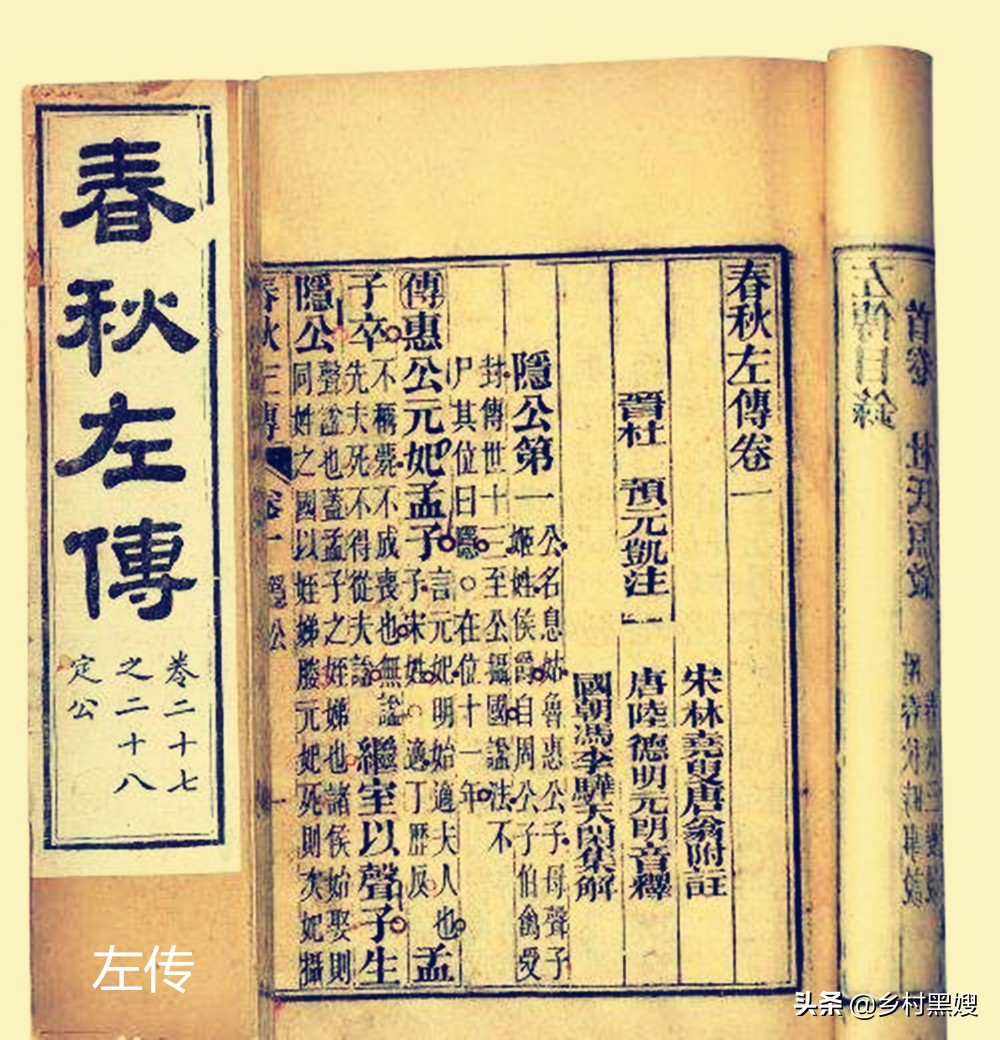 春秋左傳
卷二十七
之二十八
定公
春秋左傳卷一
宋林堯叟唐翁附註
晉杜 預元凱注 唐陸德明元朗音釋
國朝馮李驊天閑集解
隱公第一 公名息姑魯惠公子母聲子
姬姓侯爵自周公子伯禽受
封傳世十三至公攝國諡法不
尸其位曰隱○在位十一年
傳惠公元妃孟子 言元妃明始適夫人也
子宋姓○適丁歷反 孟
子卒 不稱薨不成喪也無諡
先夫死不得從夫諡 繼室以聲子生
隱公 聲諡也蓋孟子之姪娣也諸侯始娶則
同姓之國以姪娣媵元妃死則次妃攝
卷一 隱公
左傳目錄
首卷
左传
头条 @乡村黑嫂